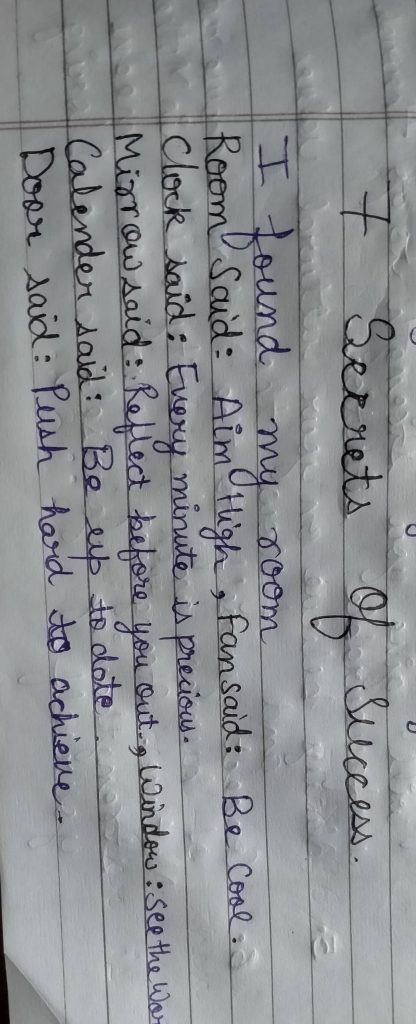 7 Secrets Of Success.
I found my room
Room Said: Aim High, Fan said: Be Cool:
Clock said: Every minute is precious.
Mirrow said: Reflect before you out, Window: See the
Calender said: Be up to date.
Door said: Push hard to achieve.